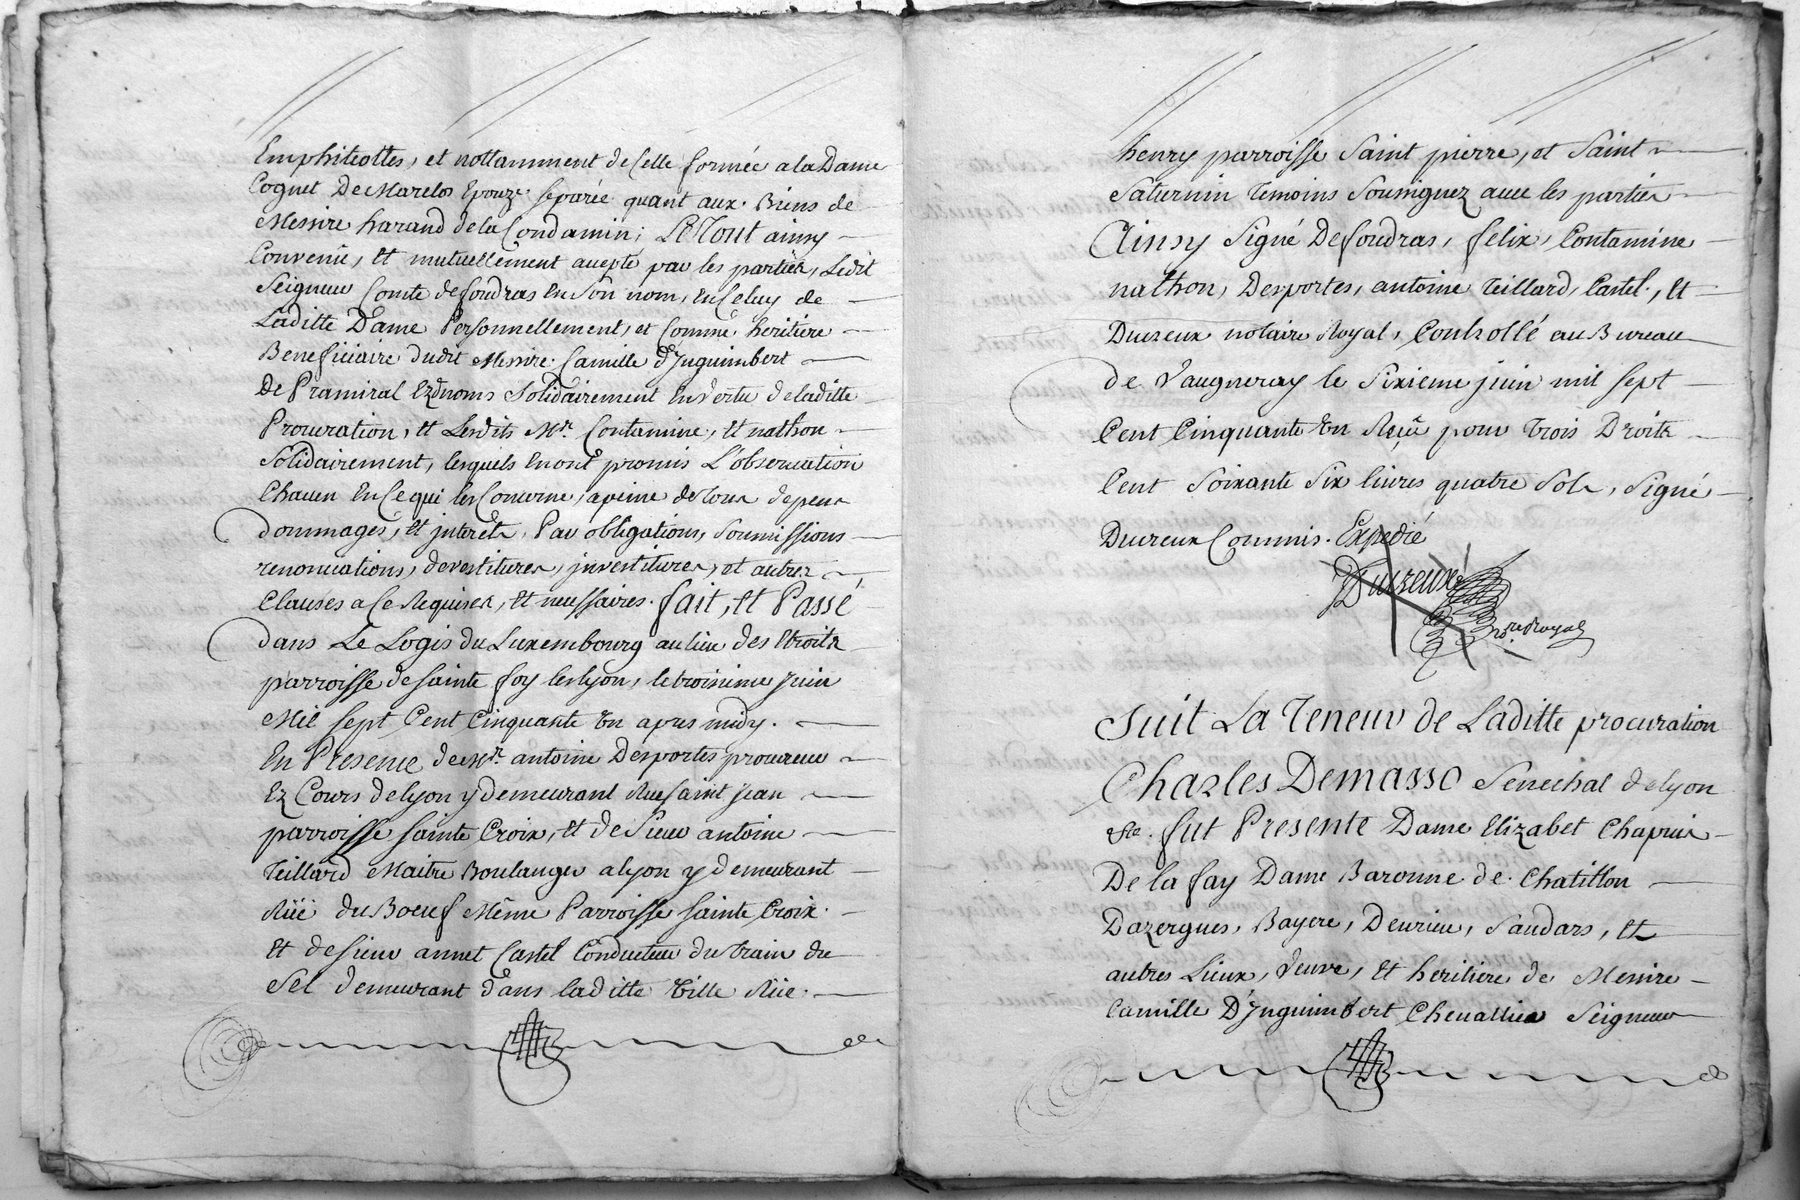 Emphiteottes, et nottamment de Celle formée a la Dame
Cognet De Marelos Epouze separée quant aux Biens de
Messire harand de la Condamin; Le Tout ainsy
Convenü, et mutuellement accepté par les parties, Ledit
Seigneur Comte defoudras En Son nom, En Celuy de
Laditte Dame Personnellement, et Comme heritiere
Beneficiaire dudit Messire Camille d'Inguimbert
De Pramiral Ezd noms Solidairement En Vertu de laditte
Procuration, et Lesdits Mr. Contamine, et nathon
Solidairement, lesquels En ont promis L'observation
Chacun En Ce qui les Concerne, a peine de tous depens
dommages, et interêts, Par obligations, Soumissions
renonciations, devestitures, jnvestitures, et autres
Clauses a Ce Requises, et necessaires. fait, et Passé
dans Le Logis du Luxembourg au lieu des Etroits
parroisse de sainte foy les lyon, le troisieme juin
Mil sept Cent Cinquante Un apres midy.
En Presence de Mr. antoine Desportes procureur
Ez Cours de lyon y demeurant Rue saint jean
parroisse sainte Croix, et de Sieur antoine
Teillard Maitre Boulanger a lyon y demeurant
Rüe du Boeuf Même Parroisse sainte Croix.
Et de sieur annet Castel Conducteur du train du
Sel demeurant dans laditte Ville Rüe
henry parroisse Saint pierre, et Saint
Saturnin Temoins Soussignez avec les parties
Ainsy Signé Defoudras, felix, Contamine
nathon, Desportes, antoine Teillard, Castel, et
Ducreux notaire Royal, Controllé au Bureau
de Vaugneray le Sixieme juin mil sept
Cent Cinquante Un Reçü pour trois Droits
Cent Soixante Six livres quatre Sols, Signé
Ducreux Commis. Expedié
Ducreux
nore Royal
Suit La Teneur de Laditte procuration
Charles Demasso Senechal de lyon
&a. fut Presente Dame Elizabet Chapuis
De la fay Dame Baronne de Chatillon
Dazergues, Bayere, Deurieu, Saudars, et
autres Lieux, Veuve, et heritiere de Messire
Camille D'Inguimbert Chevallier Seigneur